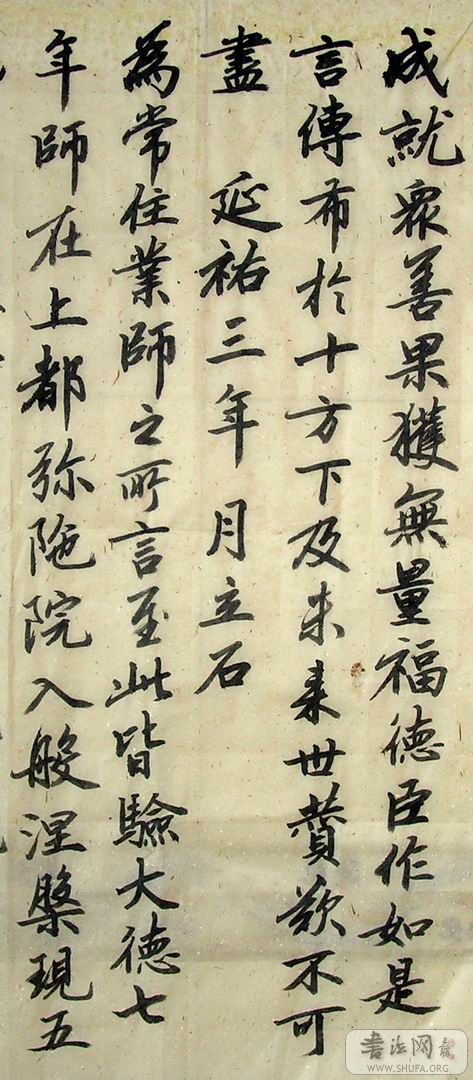 成就衆善果獲無量福德臣作如是
言傳布於十方下及未来世賛歎不可
盡 延祐三年月立石
為常住業師之所言至此皆驗大德七
年師在上都弥陁院入般涅槃現五
書法网
WWW.SHUFA.ORG